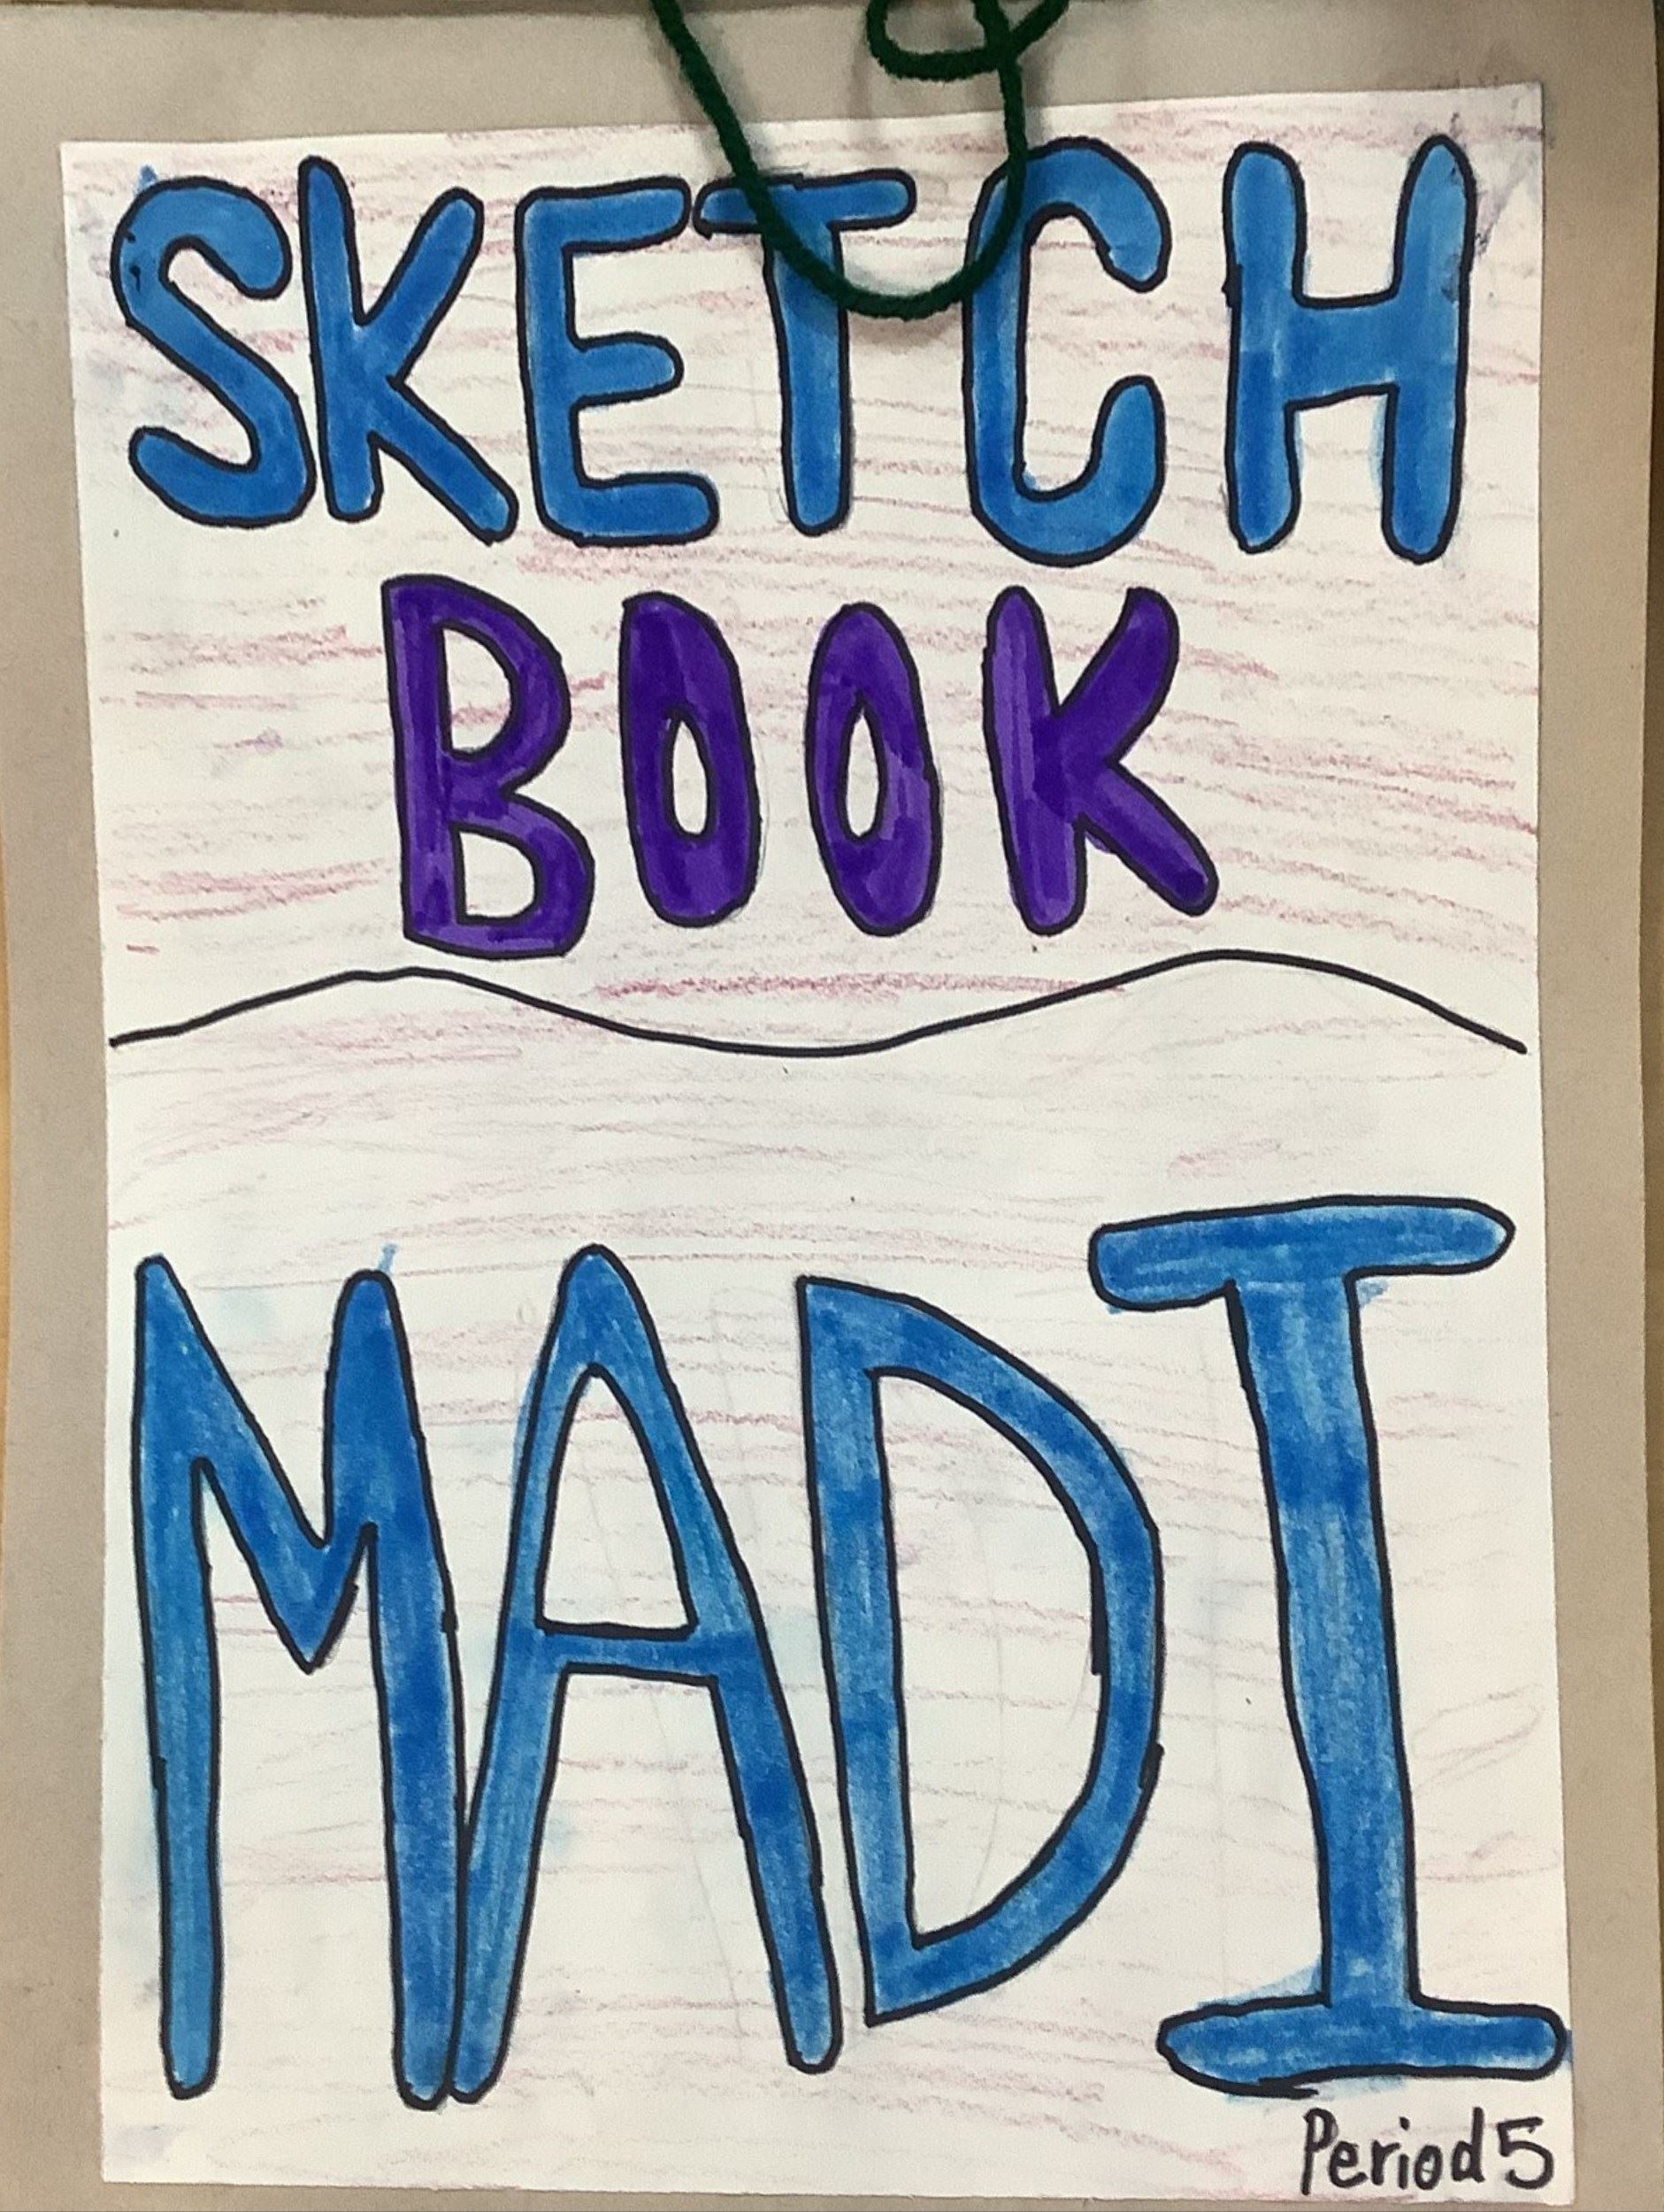 SKETCH
BOOK
MADI
Period 5